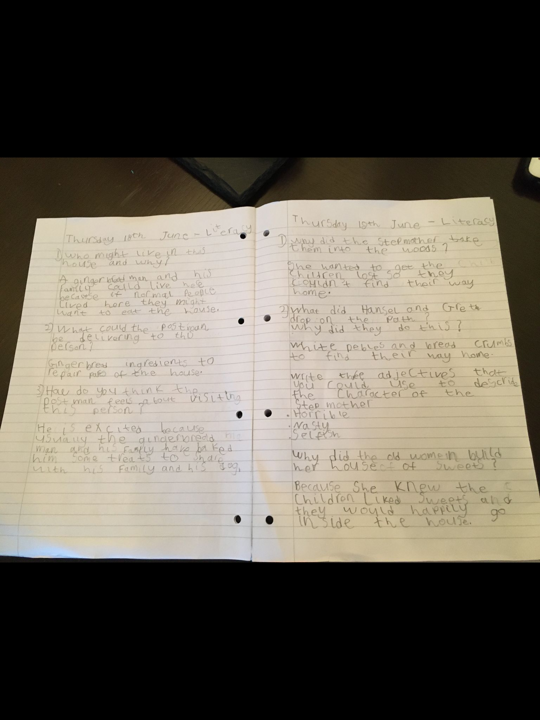 Thursday 18th June - Literacy
1) Who might live in this
house and why?
A gingerbread man and his
family could live here
because if normal people
lived here they might
want to eat the house.
2) What could the postman
be delivering to this
person?
Gingerbread ingredients to
repair of the house.
3) How do you think the
postman feels about visiting
this person?
He is excited because
usually the gingerbread
man and his family have baked
him some treats to
with his family and his
Thursday 18th June - Literacy
1) Why did the stepmother take
them into the woods?
She wanted to get the
children lost so they
couldn't find their way
home.
2) What did Hansel and Gretel
drop on the path?
Why did they do this?
White pebles and bread crumbs
to find their way home.
Write adjectives that
you could use to describe
the character of the
Stepmother
• Horrible
• Nasty
Selfish
Why did the old women build
her house of sweets?
Because she knew the
children liked sweets and
they would happily go
inside the house.